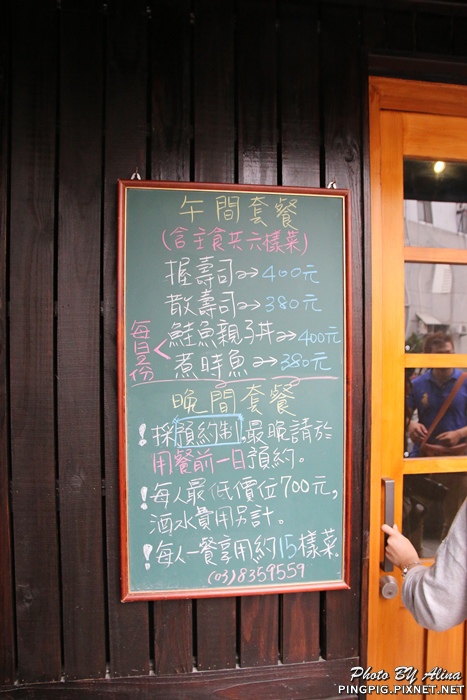 午間套餐
(含主食共六樣菜)
握壽司→400元
散壽司→380元
鮭魚親子丼→400元
煮時魚→380元
每日
份
晚間套餐
!採預約制,最晚請於
用餐前一日預約。
!每人最低價位700元,
酒水費用另計。
!每人一餐享用約15樣菜
(03)8359559
Photo BY Alina
PINGPIG.PIXNET.NET